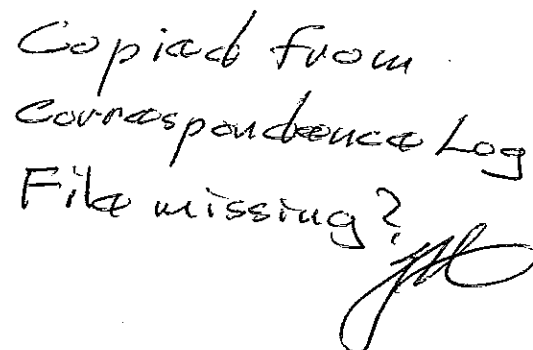 Copied from
Correspondence Log
File missing?